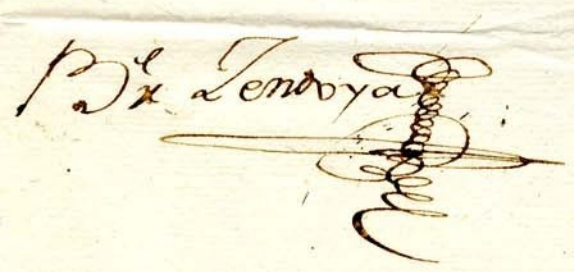 B.el Zendoya